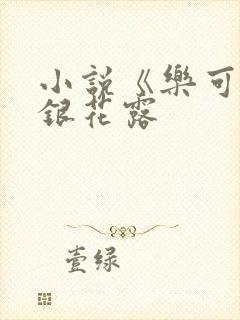 小説《樂可
銀花露
壹绿